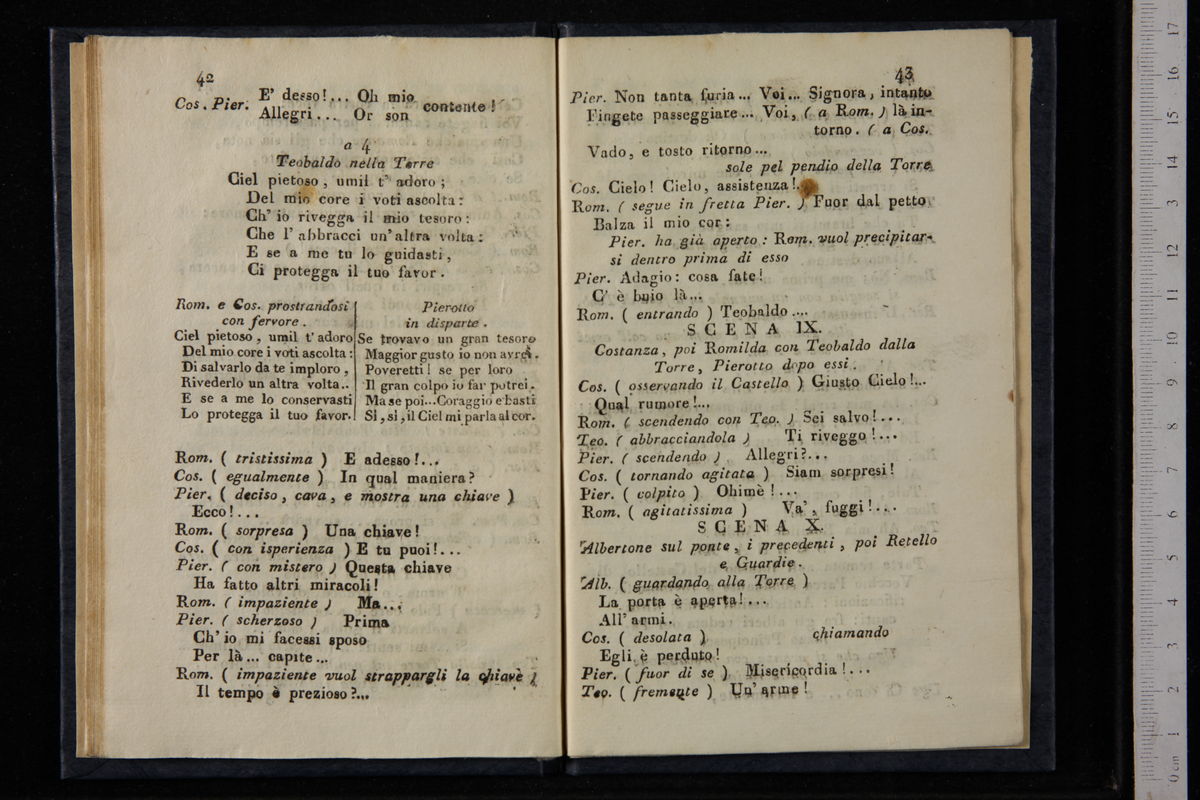 42
E' desso!... Oh mio
Cos. Pier. contente!
Allegri... Or son
a 4
Teobaldo nella Torre
Ciel pietoso, umil t' adoro;
Del mio core i voti ascolta:
Ch' io rivegga il mio tesoro:
Che l' abbracci un' altra volta:
E se a me tu lo guidasti,
Ci protegga il tuo favor.
Rom. e Cos. prostrandosi
con fervore.
Ciel pietoso, umil t' adoro
Del mio core i voti ascolta:
Di salvarlo da te imploro,
Rivederlo un altra volta..
E se a me lo conservasti
Lo protegga il tuo favor.
Pierotto
in disparte.
Se trovavo un gran tesoro
Maggior gusto io non avrei.
Poveretti! se per loro
Il gran colpo io far potrei.
Ma se poi...Coraggio e basti
Si, si, il Ciel mi parla al cor.
Rom. ( tristissima ) E adesso!...
Cos. ( egualmente ) In qual maniera?
Pier. ( deciso, cava, e mostra una chiave )
Ecco!...
Rom. ( sorpresa ) Una chiave!
Cos. ( con isperienza ) E tu puoi!...
Pier. ( con mistero ) Questa chiave
Ha fatto altri miracoli!
Rom. ( impaziente ) Ma...
Pier. ( scherzoso ) Prima
Ch' io mi facessi sposo
Per là... capite...
Rom. ( impaziente vuol strappargli la chiave )
Il tempo è prezioso?...
43
Pier. Non tanta furia... Voi... Signora, intanto
Fingete passeggiare... Voi, ( a Rom. ) là in-
torno. ( a Cos.
Vado, e tosto ritorno...
sole pel pendio della Torre
Cos. Cielo! Cielo, assistenza!
Rom. ( segue in fretta Pier. ) Fuor dal petto
Balza il mio cor:
Pier. ha già aperto: Rom. vuol precipitar-
si dentro prima di esso
Pier. Adagio: cosa fate!
C' è buio là...
Rom. ( entrando ) Teobaldo....
SCENA IX.
Costanza, poi Romilda con Teobaldo dalla
Torre, Pierotto dopo essi.
Cos. ( osservando il Castello ) Giusto Cielo!...
Qual rumore!...
Rom. ( scendendo con Teo. ) Sei salvo!...
Teo. ( abbracciandola ) Ti riveggo!...
Pier. ( scendendo ) Allegri?...
Cos. ( tornando agitata ) Siam sorpresi!
Pier. ( colpito ) Ohimè!...
Rom. ( agitatissima ) Va', fuggi!...
SCENA X.
Albertone sul ponte, i precedenti, poi Retello
e Guardie.
Alb. ( guardando alla Torre )
La porta è aperta!...
All' armi.
chiamando
Cos. ( desolata )
Egli è perduto!
Pier. ( fuor di se ) Misericordia!...
Teo. ( fremente ) Un' arme!
17
16
15
14
3
12
11
10
9
8
7
6
5
4
3
2
1
0 cm